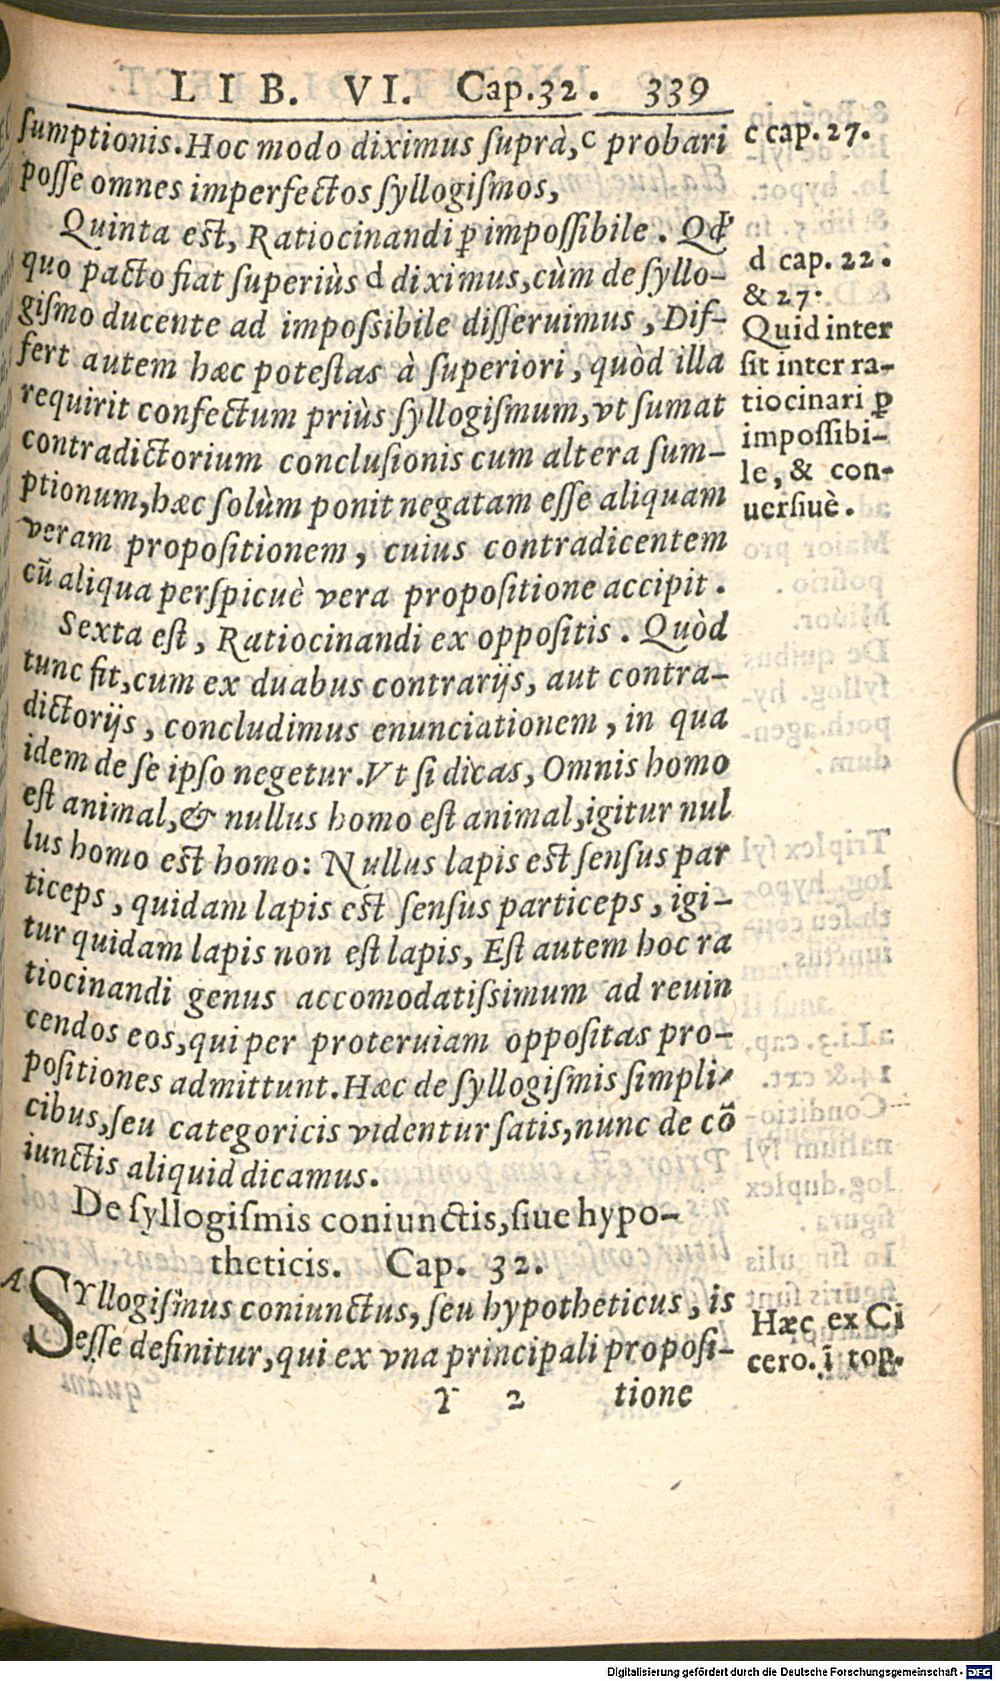 LIB. VI. Cap. 32. 339
sumptionis. Hoc modo diximus suprà, c probari
posse omnes imperfectos syllogismos,
Quinta est, Ratiocinandi ꝑ impossibile. Qđ
quo pacto fiat superiùs d diximus, cùm de syllo-
gismo ducente ad impossibile disseruimus, Dif-
fert autem hæc potestas à superiori, quòd illa
requirit confectum priùs syllogismum, vt sumat
contradictorium conclusionis cum altera sum-
ptionum, hæc solùm ponit negatam esse aliquam
veram propositionem, cuius contradicentem
cũ aliqua perspicuè vera propositione accipit.
Sexta est, Ratiocinandi ex oppositis. Quòd
tunc fit, cum ex duabus contrarijs, aut contra-
dictorijs, concludimus enunciationem, in qua
idem de se ipso negetur. Vt si dicas, Omnis homo
est animal, & nullus homo est animal, igitur nul
lus homo est homo: Nullus lapis est sensus par
ticeps, quidam lapis est sensus particeps, igi-
tur quidam lapis non est lapis, Est autem hoc ra
tiocinandi genus accomodatissimum ad reuin
cendos eos, qui per proteruiam oppositas pro-
positiones admittunt. Hæc de syllogismis simpli-
cibus, seu categoricis videntur satis, nunc de cõ
iunctis aliquid dicamus.
De syllogismis coniunctis, siue hypo-
theticis. Cap. 32.
SYllogismus coniunctus, seu hypotheticus, is
esse definitur, qui ex vna principali proposi-
Y 2 tione
c cap. 27.
d cap. 22.
& 27.
Quid inter
sit inter ra-
tiocinari ꝑ
impossibi-
le, & con-
uersiuè.
Hæc ex Ci
cero. ĩ top.
Digitalisierung gefördert durch die Deutsche Forschungsgemeinschaft - DFG